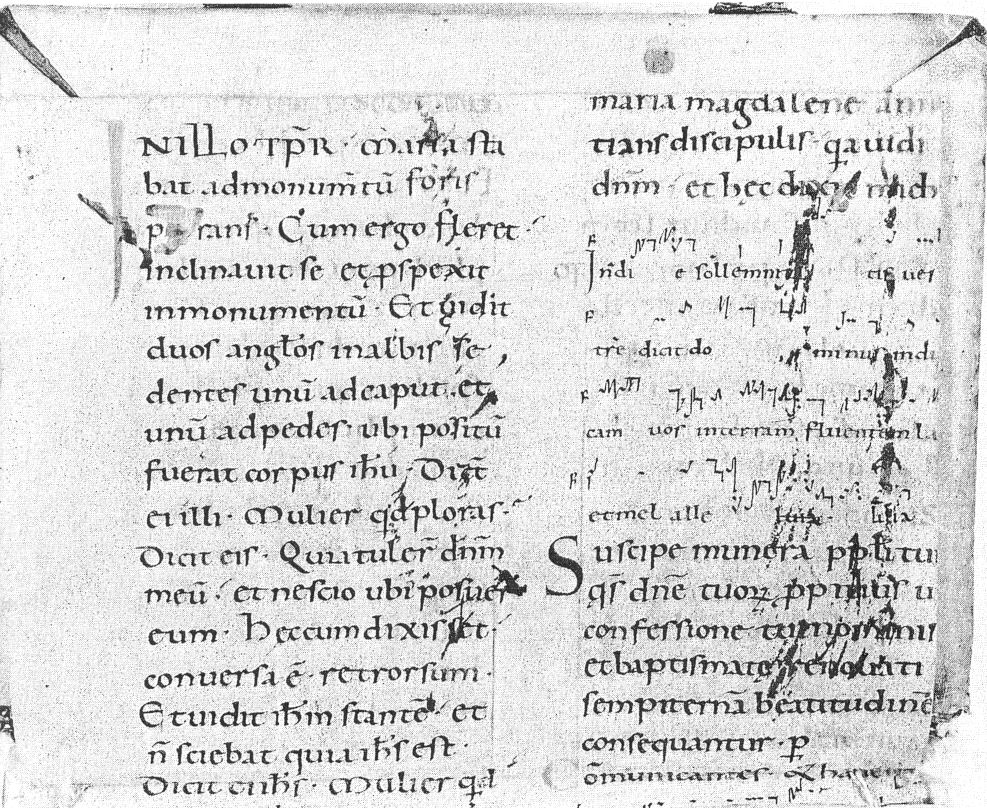 NILLO TPR̄ · Maria sta
bat ad monumtū foris
p rans · Cum ergo fleret ·
inclinavit se et ꝓspexit
in monumentū · Et vidit
duos anglos in albis se
dentes unū ad caput · et
unū ad pedes · ubi positū
fuerat corpus ihū · Dicūt
ei illi · Mulier qd ploras ·
Dicit eis · Quia tuler̄ dnm̄
meū · et nescio ubi posuer̄
eum · Hec cum dixisset ·
conversa ē · retrorsum ·
Et vidit ihm̄ stantē · et
n̄ sciebat quia ihs̄ est ·
Dicit ei ihs̄ · Mulier qd
maria magdalene
tians discipulis · qa uidi
dnm̄ · et hec mich
In di e sollemni tis ves
tre dicit do minus indu
cam vos in terram fluentem la
et mel alle luia
Suscipe munera ppli tui
qs dne tuoꝝ ꝓpitius u
confessione tui nominis
et baptismate renovati
sempiternā beatitudinē
consequantur · p
Communicantes · &